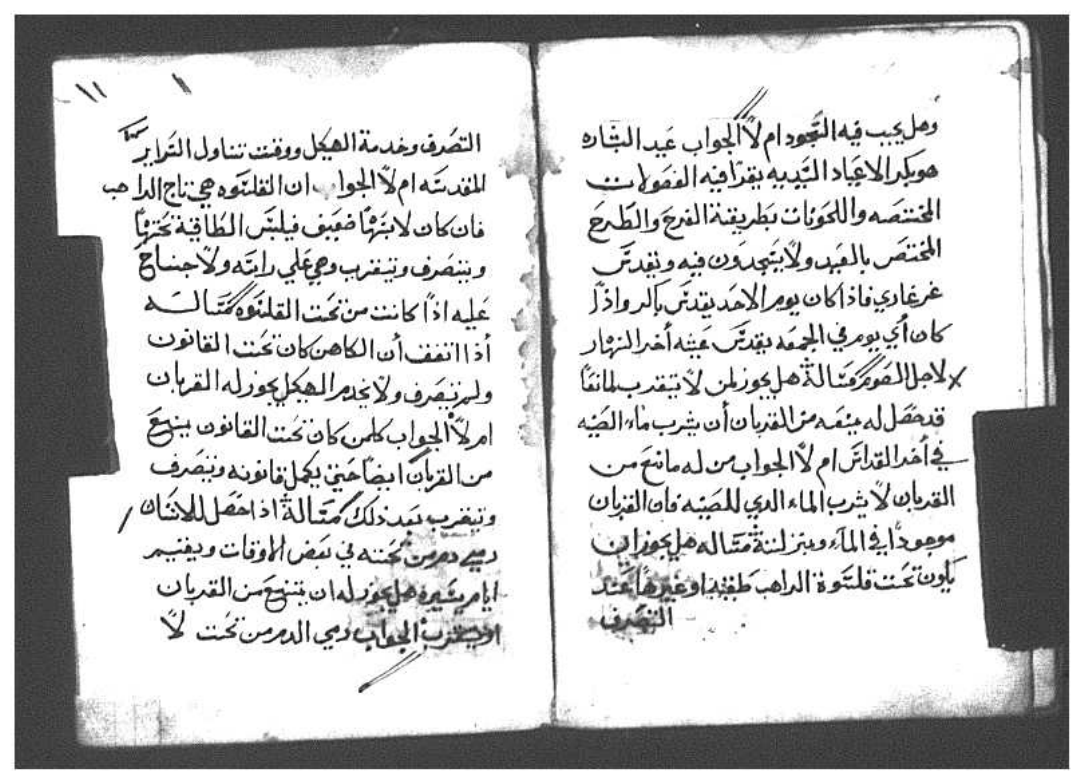 وهل يجب فيه السجود ام لا الجواب عيد البشاره
هو بكر الاعياد السيديه يقرا فيه الفصولات
المختصه واللحونات بطريقة الفرح والطرح
المختص بالعيد ولا يسجدون فيه وتقدس
عن عادي فاذا كان يوم الاحد يقدس باكر واذا
كان أي يوم في الجمعه يقدس عشيه أخر النهار
لاجل الصوم مسالة هل يجوز لمن لا يتقرب لمانعا
قد حصل له يمنعه من القربان أن يشرب ماء الصنيه
في أخر القداس ام لا الجواب من له مانع من
القربان لا يشرب الماء الدي للصنيه فان القربان
موجودا في الماء وبمنزلته مساله هل يجوز ان
يكون تحت قلنسوة الراهب طقيه او غيرها عند
التصرف
١١
التصرف وخدمة الهيكل ووقت تناول السراير
المقدسه ام لا الجواب ان القلنسوه هي تاج الراهب
فان كان لابسها ضعيف فيلبس الطاقية تحتها
ويتصرف ويتقرب وهي علي راسه ولا جناح
عليه اذا كانت من تحت القلنسوه مساله
أذا اتفق أن الكاهن كان تحت القانون
ولم يتصرف ولا يخدم الهيكل يجوز له القربان
ام لا الجواب كلمن كان تحت القانون يمنع
من القربان ايضا حتي يكمل قانونه ويتصرف
ويتقرب بعد ذلك مسالة اذا حصل للانسان
رمي دم من تحته في بعض الاوقات ويقيم
ايام يسيره هل يجوز له ان يمتنع من القربان
او يتقرب الجواب رمي الدم من تحت لا